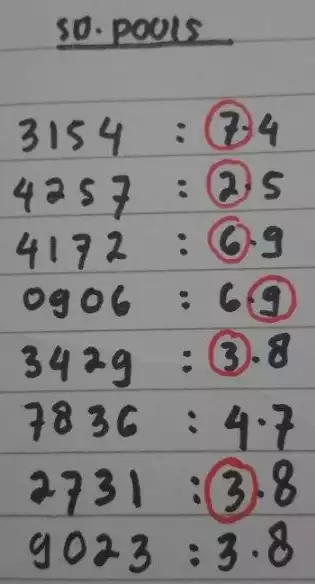 SD. POOLS
3154 : 7.4
4257 : 2.5
4172 : 6.9
0906 : 6.9
3429 : 3.8
7836 : 4.7
2731 : 3.8
9023 : 3.8